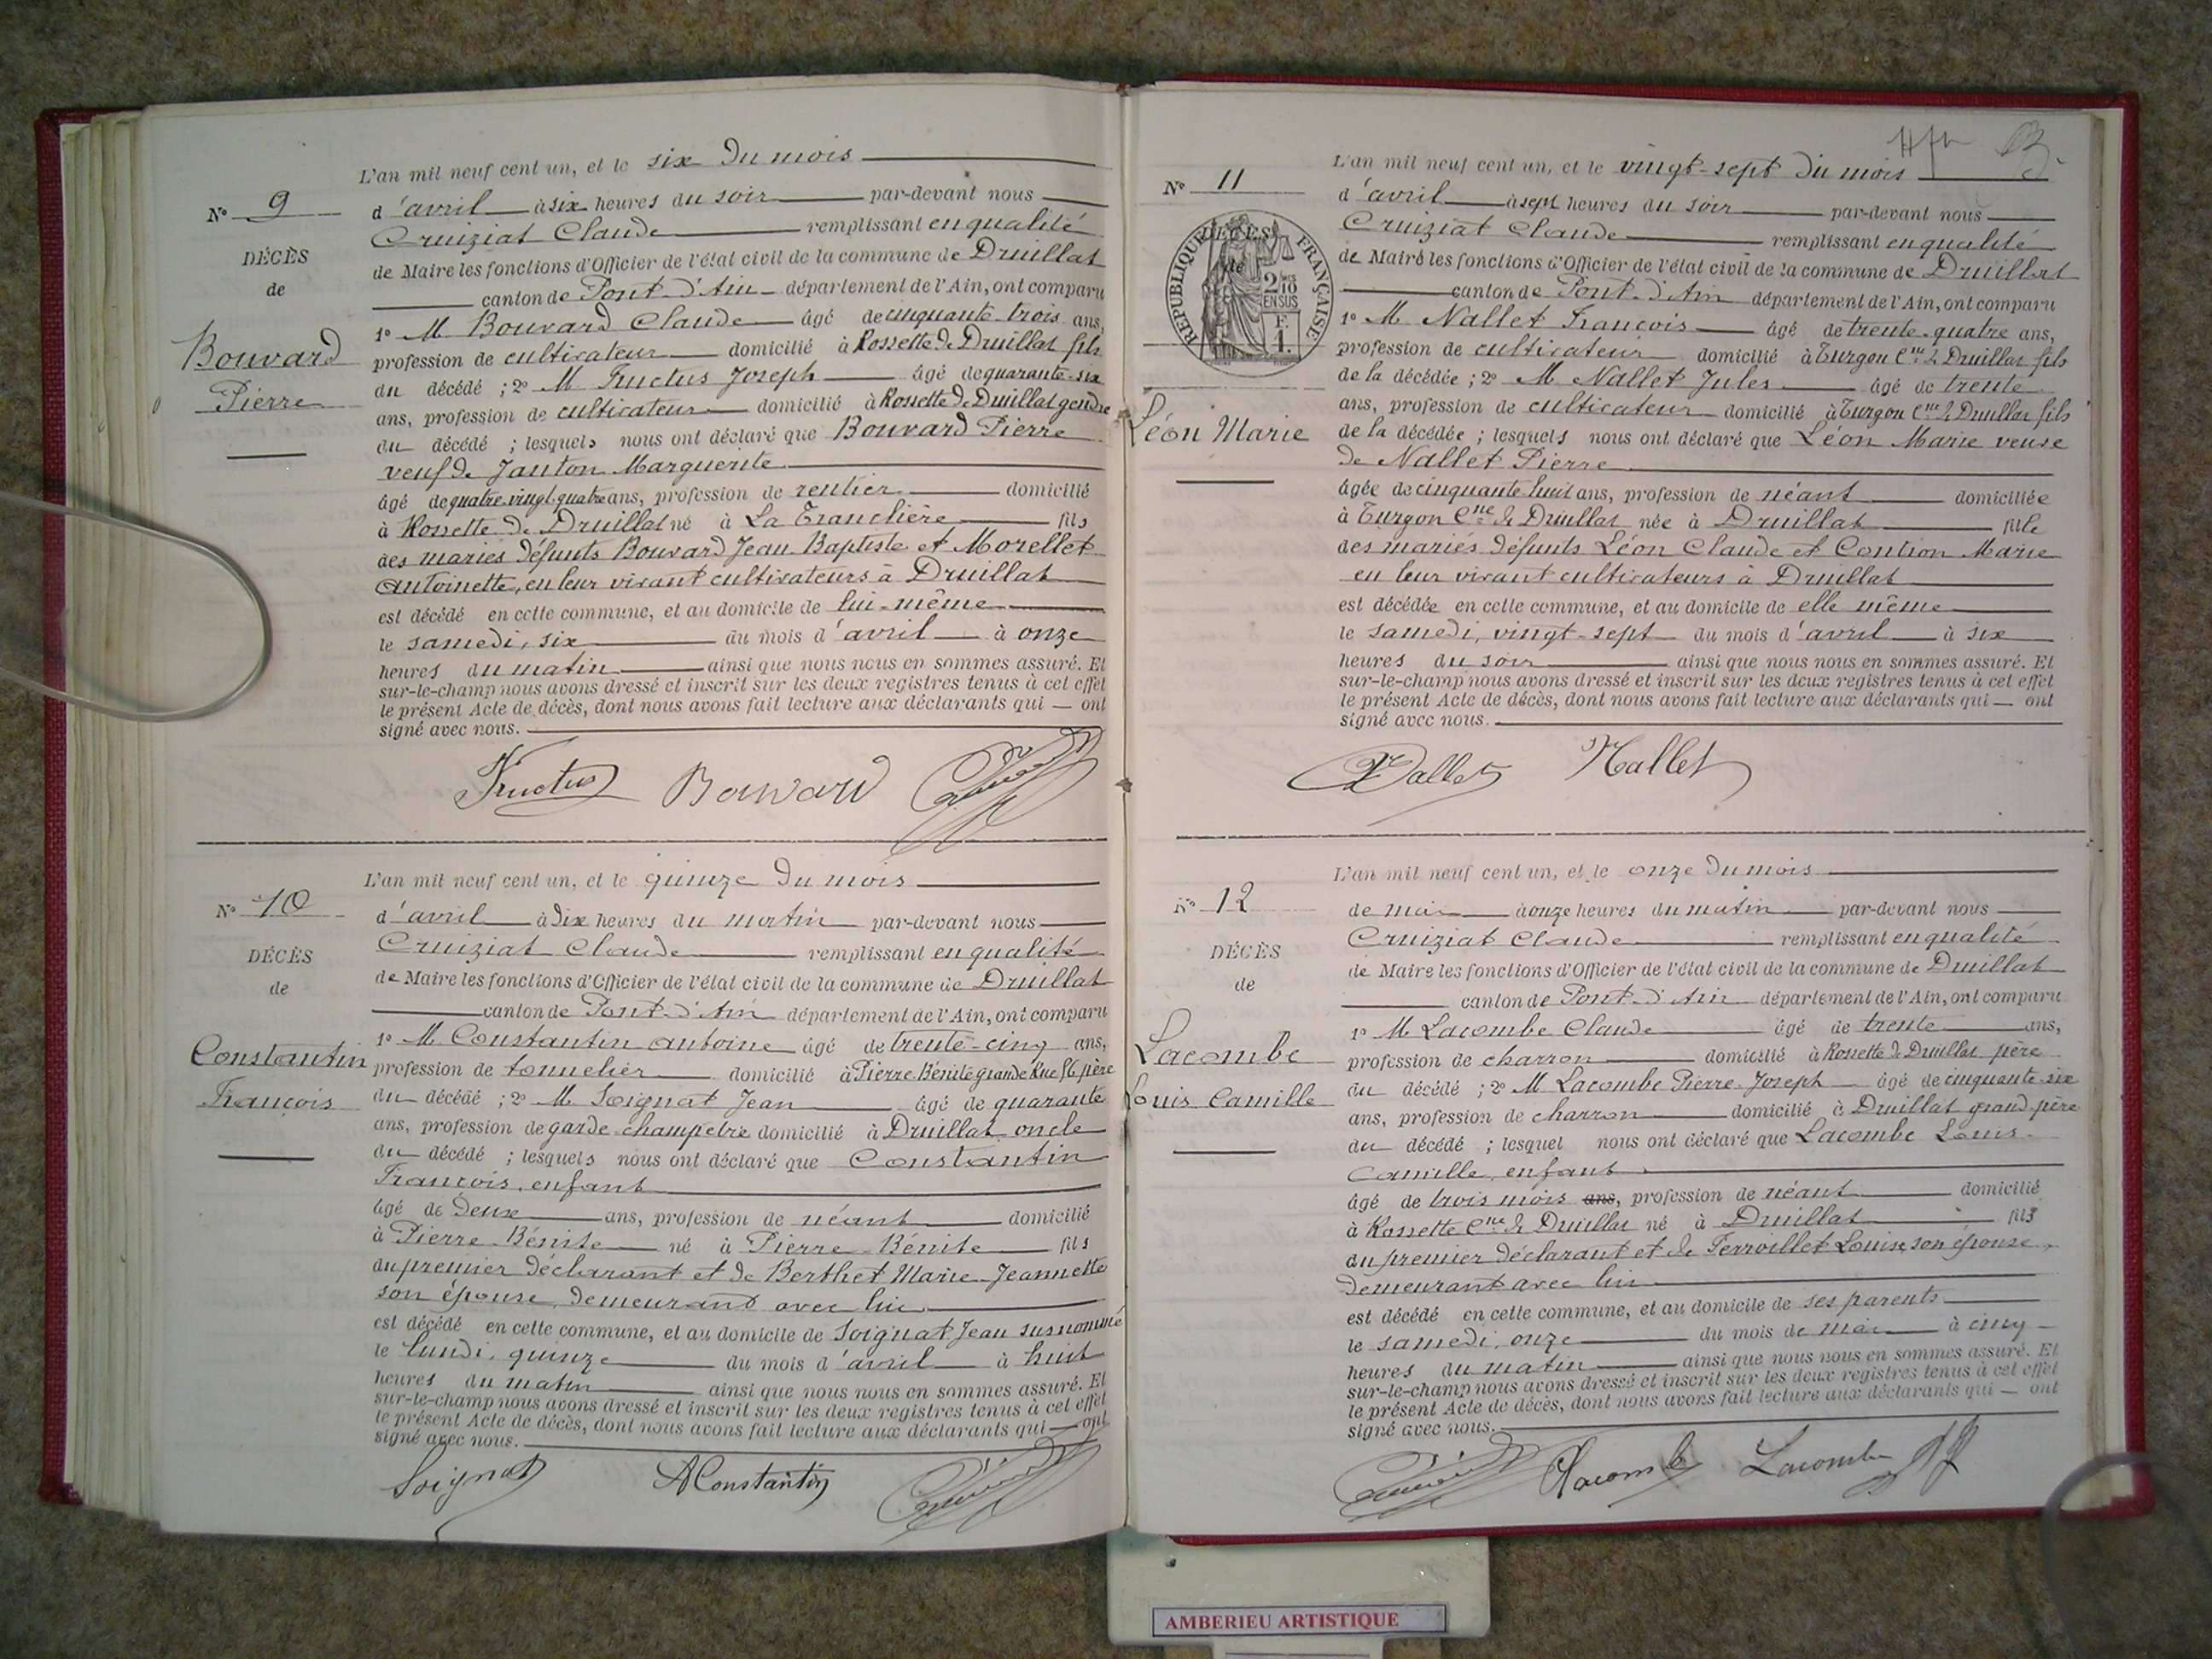 L'an mil neuf cent un, et le six du mois
N° 9
d'avril à six heures du soir par-devant nous
Cruiziat Claude remplissant en qualité
DÉCÈS
de Maire les fonctions d'Officier de l'état civil de la commune de Druillat
de
canton de Pont-d'Ain département de l'Ain, ont comparu
1° M Bouvard Claude âgé de cinquante-trois ans,
Bouvard
profession de cultivateur domicilié à Rossette de Druillat fils
du décédé ; 2° M Fructus Joseph âgé de quarante-six
Pierre
ans, profession de cultivateur domicilié à Rossette de Druillat gendre
du décédé ; lesquels nous ont déclaré que Bouvard Pierre
veuf de Janton Marguerite
âgé de quatre-vingt-quatre ans, profession de rentier domicilié
à Rossette de Druillat né à La Tranclière fils
des mariés défunts Bouvard Jean-Baptiste et Morellet
Antoinette, en leur vivant cultivateurs à Druillat
est décédé en cette commune, et au domicile de lui-même
le samedi, six du mois d'avril à onze
heures du matin ainsi que nous nous en sommes assuré. Et
sur-le-champ nous avons dressé et inscrit sur les deux registres tenus à cet effet
le présent Acte de décès, dont nous avons fait lecture aux déclarants qui — ont
signé avec nous.
Fructus Bouvard
L'an mil neuf cent un, et le quinze du mois
N° 10
d'avril à dix heures du matin par-devant nous
Cruiziat Claude remplissant en qualité
DÉCÈS
de Maire les fonctions d'Officier de l'état civil de la commune de Druillat
de
canton de Pont-d'Ain département de l'Ain, ont comparu
1° M Constantin Antoine âgé de trente-cinq ans,
Constantin
profession de tonnelier domicilié à Pierre Bénite grande Rue 56 père
François
du décédé ; 2° M Soignat Jean âgé de quarante
ans, profession de garde-champêtre domicilié à Druillat oncle
du décédé ; lesquels nous ont déclaré que Constantin
François, enfant
âgé de deux ans, profession de néant domicilié
à Pierre-Bénite né à Pierre-Bénite fils
du premier déclarant et de Berthet Marie-Jeannette
son épouse, demeurant avec lui
est décédé en cette commune, et au domicile de Soignat Jean susnommé
le lundi, quinze du mois d'avril à huit
heures du matin ainsi que nous nous en sommes assuré. Et
sur-le-champ nous avons dressé et inscrit sur les deux registres tenus à cet effet
le présent Acte de décès, dont nous avons fait lecture aux déclarants qui — ont
signé avec nous.
Soignat AConstantin
L'an mil neuf cent un, et le vingt-sept du mois
N° 11
d'avril à sept heures du soir par-devant nous
Cruiziat Claude remplissant en qualité
DÉCÈS
de Maire les fonctions d'Officier de l'état civil de la commune de Druillat
de
RÉPUBLIQUE FRANÇAISE
2/10 EN SUS
F. 1.
canton de Pont-d'Ain département de l'Ain, ont comparu
1° M Nallet François âgé de trente-quatre ans,
profession de cultivateur domicilié à Turgon Cne de Druillat fils
de la décédée ; 2° M Nallet Jules âgé de trente
ans, profession de cultivateur domicilié à Turgon Cne de Druillat fils
Léon Marie
de la décédée ; lesquels nous ont déclaré que Léon Marie veuve
de Nallet Pierre
âgée de cinquante huit ans, profession de néant domiciliée
à Turgon Cne de Druillat née à Druillat fille
des mariés défunts Léon Claude et Contion Marie
en leur vivant cultivateurs à Druillat
est décédée en cette commune, et au domicile de elle même
le samedi, vingt-sept du mois d'avril à six
heures du soir ainsi que nous nous en sommes assuré. Et
sur-le-champ nous avons dressé et inscrit sur les deux registres tenus à cet effet
le présent Acte de décès, dont nous avons fait lecture aux déclarants qui — ont
signé avec nous.
Nallet Nallet
L'an mil neuf cent un, et le onze du mois
N° 12
de mai à onze heures du matin par-devant nous
Cruiziat Claude remplissant en qualité
DÉCÈS
de Maire les fonctions d'Officier de l'état civil de la commune de Druillat
de
canton de Pont-d'Ain département de l'Ain, ont comparu
1° M Lacombe Claude âgé de trente ans,
Lacombe
profession de charron domicilié à Rossette de Druillat père
Louis Camille
du décédé ; 2° M Lacombe Pierre-Joseph âgé de cinquante-six
ans, profession de charron domicilié à Druillat grand père
du décédé ; lesquel nous ont déclaré que Lacombe Louis
Camille, enfant
âgé de trois mois ans, profession de néant domicilié
à Rossette Cne de Druillat né à Druillat fils
du premier déclarant et de Ferroillet Louise son épouse,
demeurant avec lui
est décédé en cette commune, et au domicile de ses parents
le samedi, onze du mois de mai à cinq
heures du matin ainsi que nous nous en sommes assuré. Et
sur-le-champ nous avons dressé et inscrit sur les deux registres tenus à cet effet
le présent Acte de décès, dont nous avons fait lecture aux déclarants qui — ont
signé avec nous.
CLacombe Lacombe
AMBERIEU ARTISTIQUE